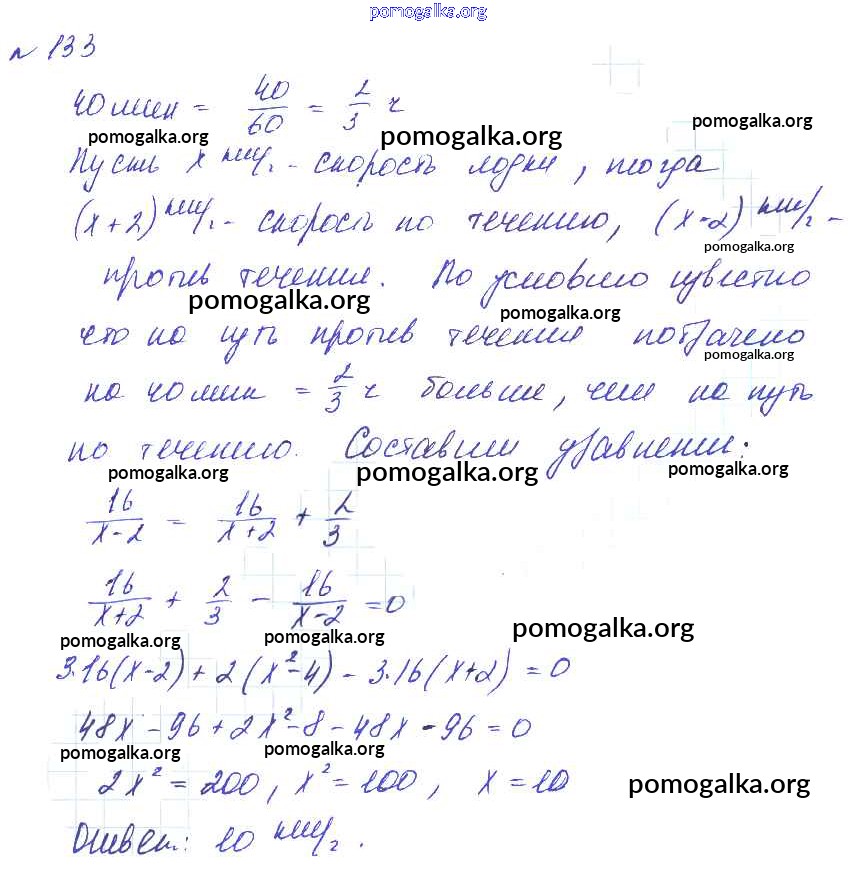 pomogalka.org
№ 133
40 мин = 40/60 = 2/3 ч
pomogalka.org pomogalka.org pomogalka.org
Пусть x км/ч - скорость лодки, тогда
(x+2) км/ч - скорость по течению, (x-2) км/ч -
pomogalka.org
против течения. По условию известно
pomogalka.org pomogalka.org
что на путь против течения потрачено
pomogalka.org
на 40 мин = 2/3 ч больше, чем на путь
по течению. Составим уравнение:
pomogalka.org pomogalka.org pomogalka.org
16/(x-2) = 16/(x+2) + 2/3
16/(x+2) + 2/3 - 16/(x-2) = 0
pomogalka.org pomogalka.org pomogalka.org
3·16(x-2) + 2(x²-4) - 3·16(x+2) = 0
48x - 96 + 2x² - 8 - 48x - 96 = 0
pomogalka.org pomogalka.org
2x² = 200, x² = 100, x = 10
pomogalka.org
Ответ: 10 км/ч.